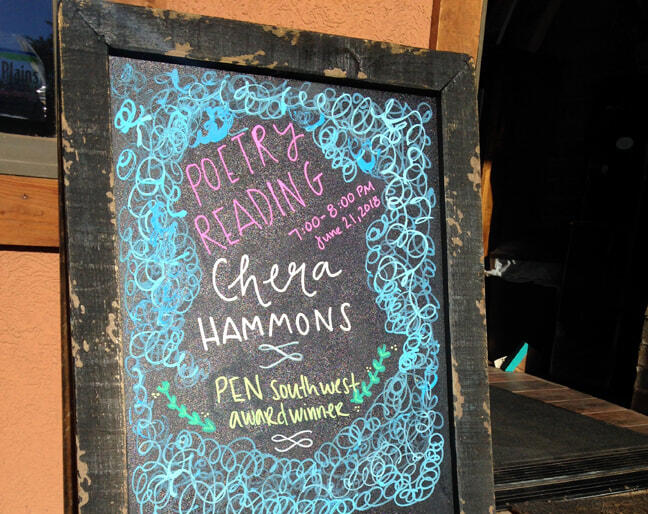 Plains
POETRY
READING
7:00-8:00 PM
June 21, 2018
Chera
HAMMONS
PEN Southwest
award winner